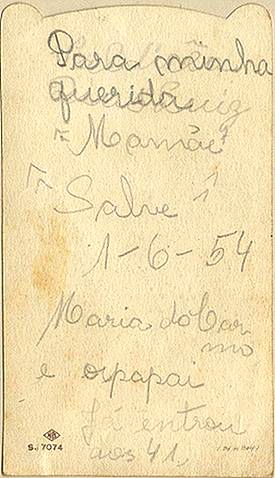 Para minha
querida
"Mamãe"
"Salve"
1-6-54
Maria do Car
mo
e opapai
Já entrou
aos 41,
S. 7074